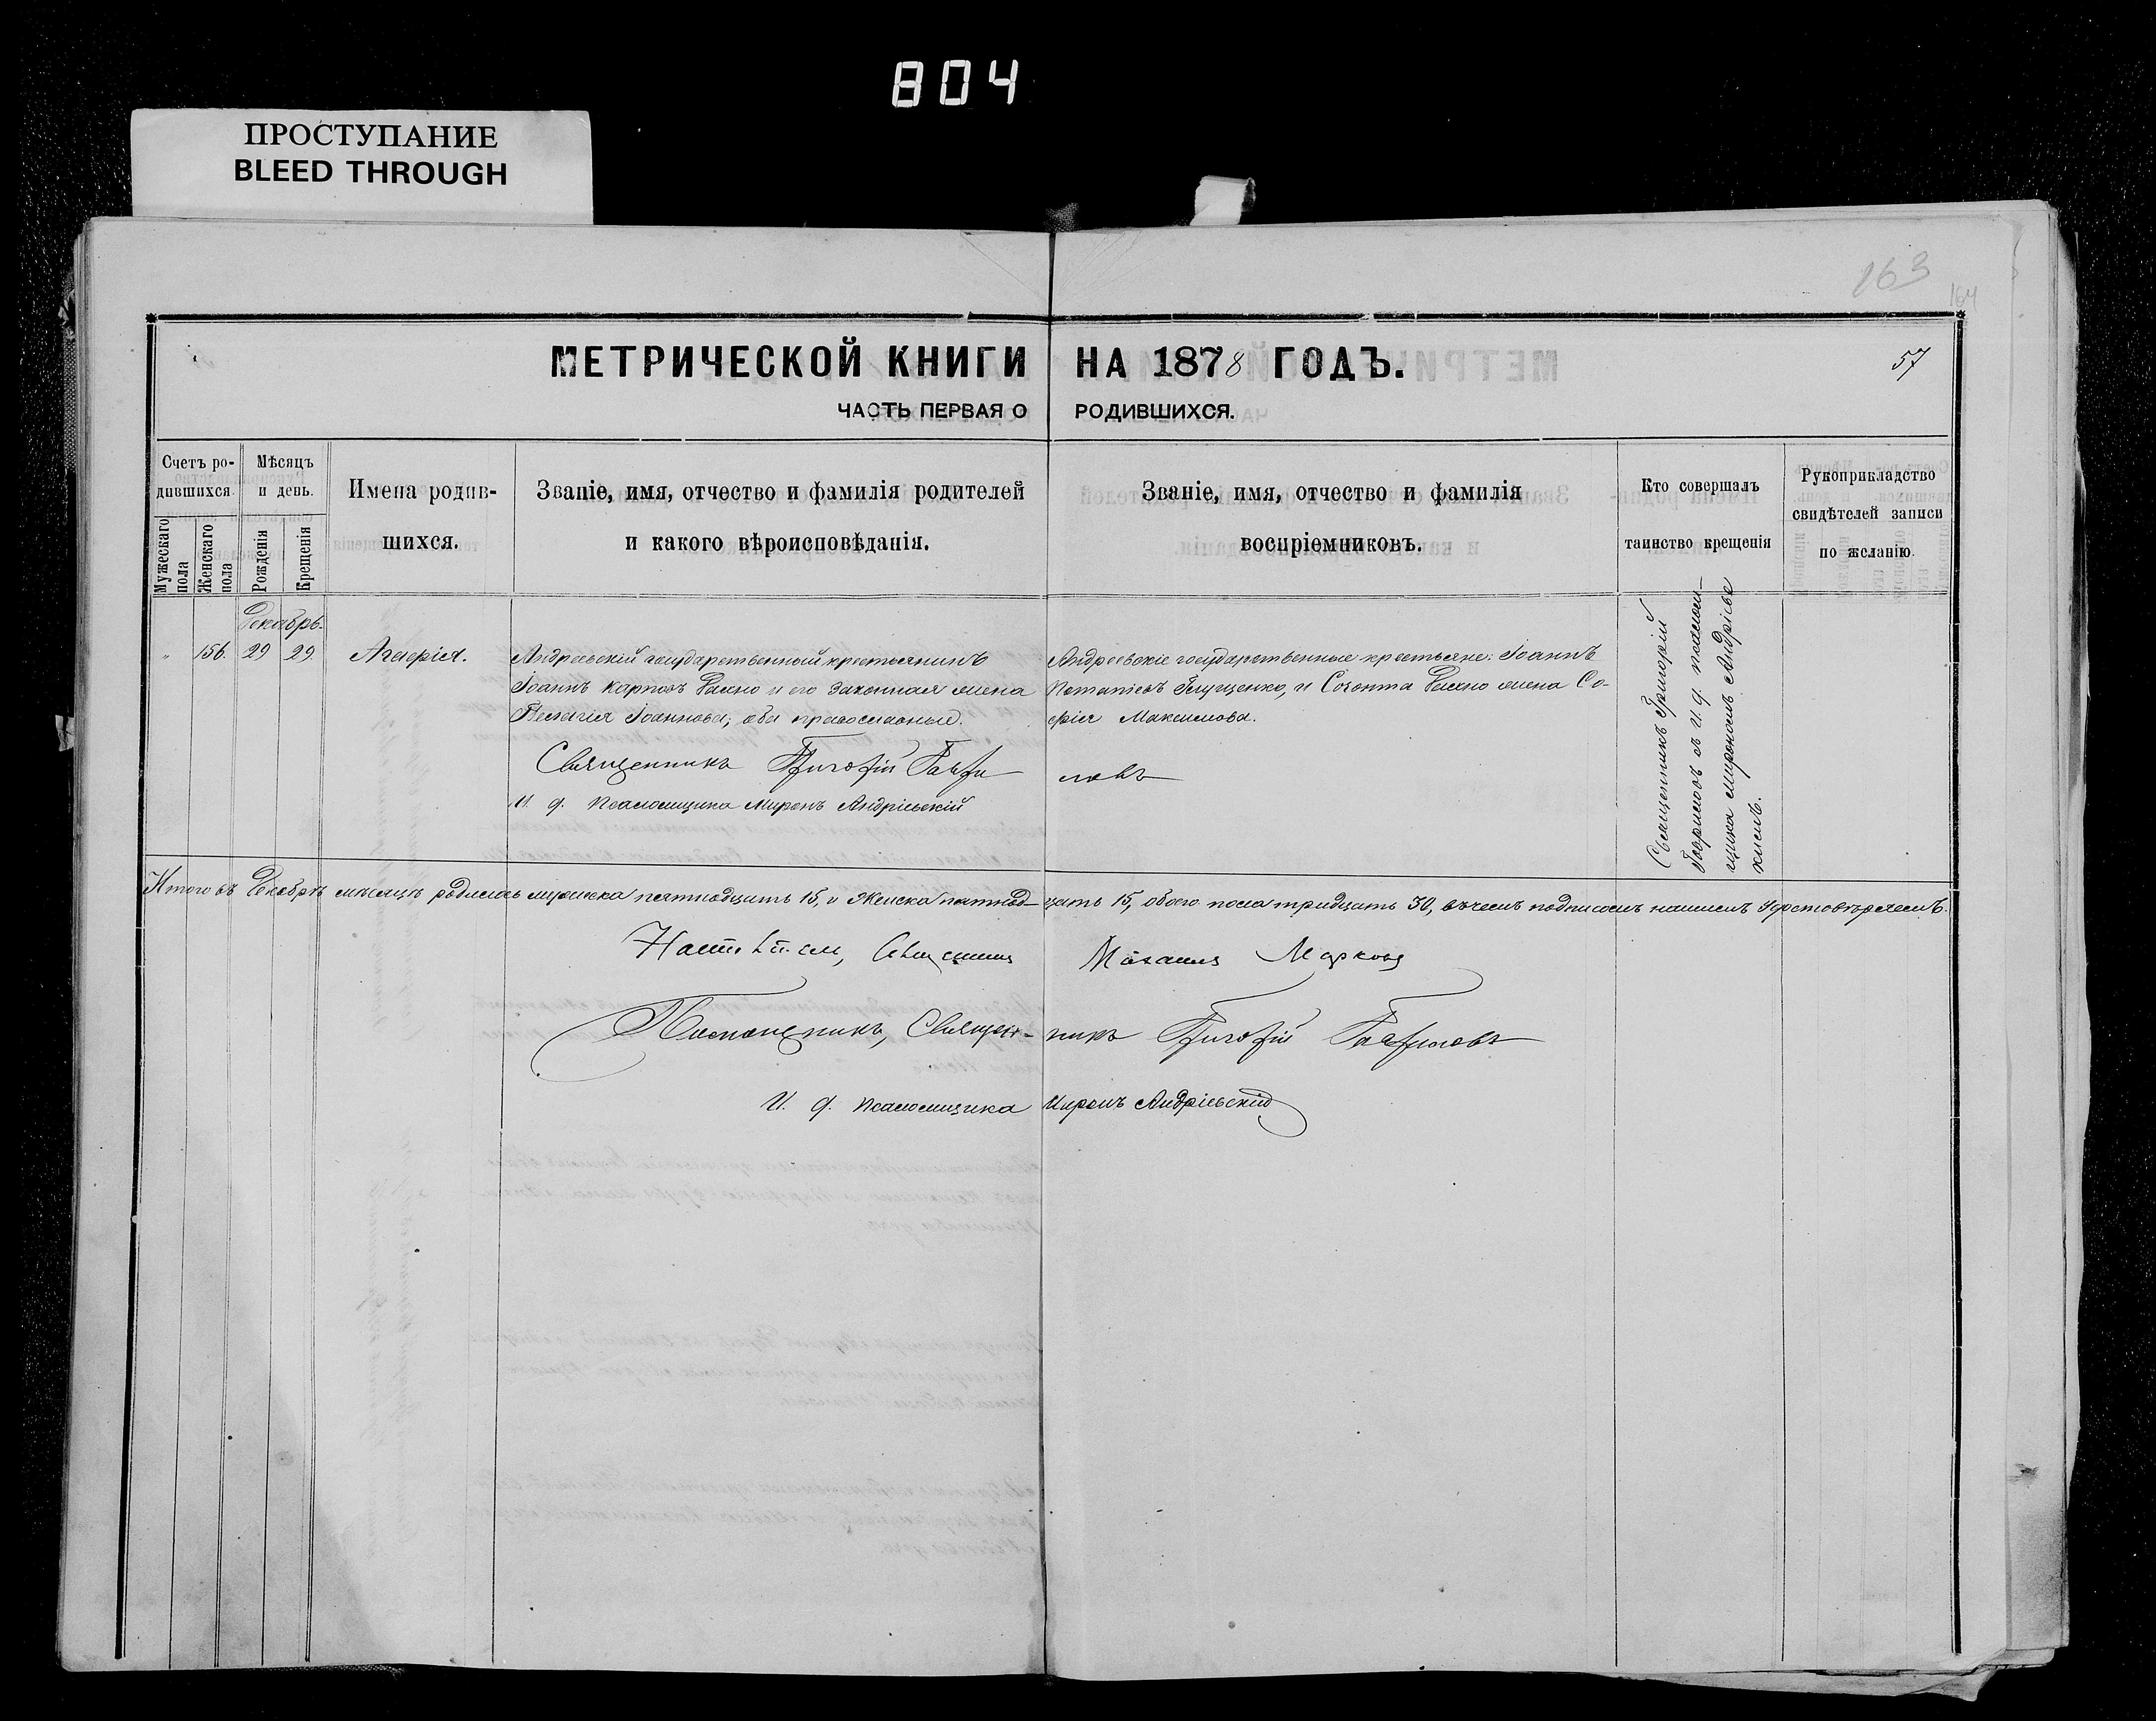 804
ПРОСТУПАНИЕ
BLEED THROUGH
163
164
МЕТРИЧЕСКОЙ КНИГИ НА 1878 ГОДЪ.
57
ЧАСТЬ ПЕРВАЯ О РОДИВШИХСЯ.
Счетъ ро-
дившихся.
Мужескаго
пола
Женскаго
пола
Мѣсяцъ
и день.
Рожденія
Крещенія
Имена родив-
шихся.
Званіе, имя, отчество и фамилія родителей
и какого вѣроисповѣданія.
Званіе, имя, отчество и фамилія
воспріемниковъ.
Кто совершалъ
таинство крещенія
Рукоприкладство
свидѣтелей записи
по желанію.
Декабрь.
„ 156. 29 29.
Агафія.
Андреевскій государственный крестьянинъ
Іоаннъ Карповъ Рахно и его законная жена
Пелагія Іоаннова; оба православные.
Священникъ Григорій Гаври
И. д. Псаломщика Миронъ Андріевскій
Андреевскіе государственные крестьяне: Іоаннъ
Потапіевъ Глущенко, и Созонта Рахно жена Со-
фія Максимова.
ловъ
Священникъ Григорій
Гавриловъ съ И. д. псалом-
щика Мирономъ Андріев
кимъ.
Итого въ Декабрѣ мѣсяцѣ родилось мужеска пятнадцать 15, и Женска пятнад- цать 15, обоего пола тридцать 30, въ чемъ подписомъ нашимъ Удостовѣряемъ.
Настоятель, Священникъ Марковъ
Помощникъ, Священ- никъ Григорій Гавриловъ
И. д. псаломщика Миронъ Андріевскій